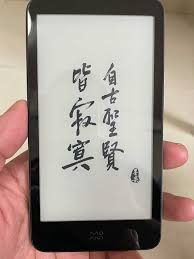 自古聖賢
皆寂寞